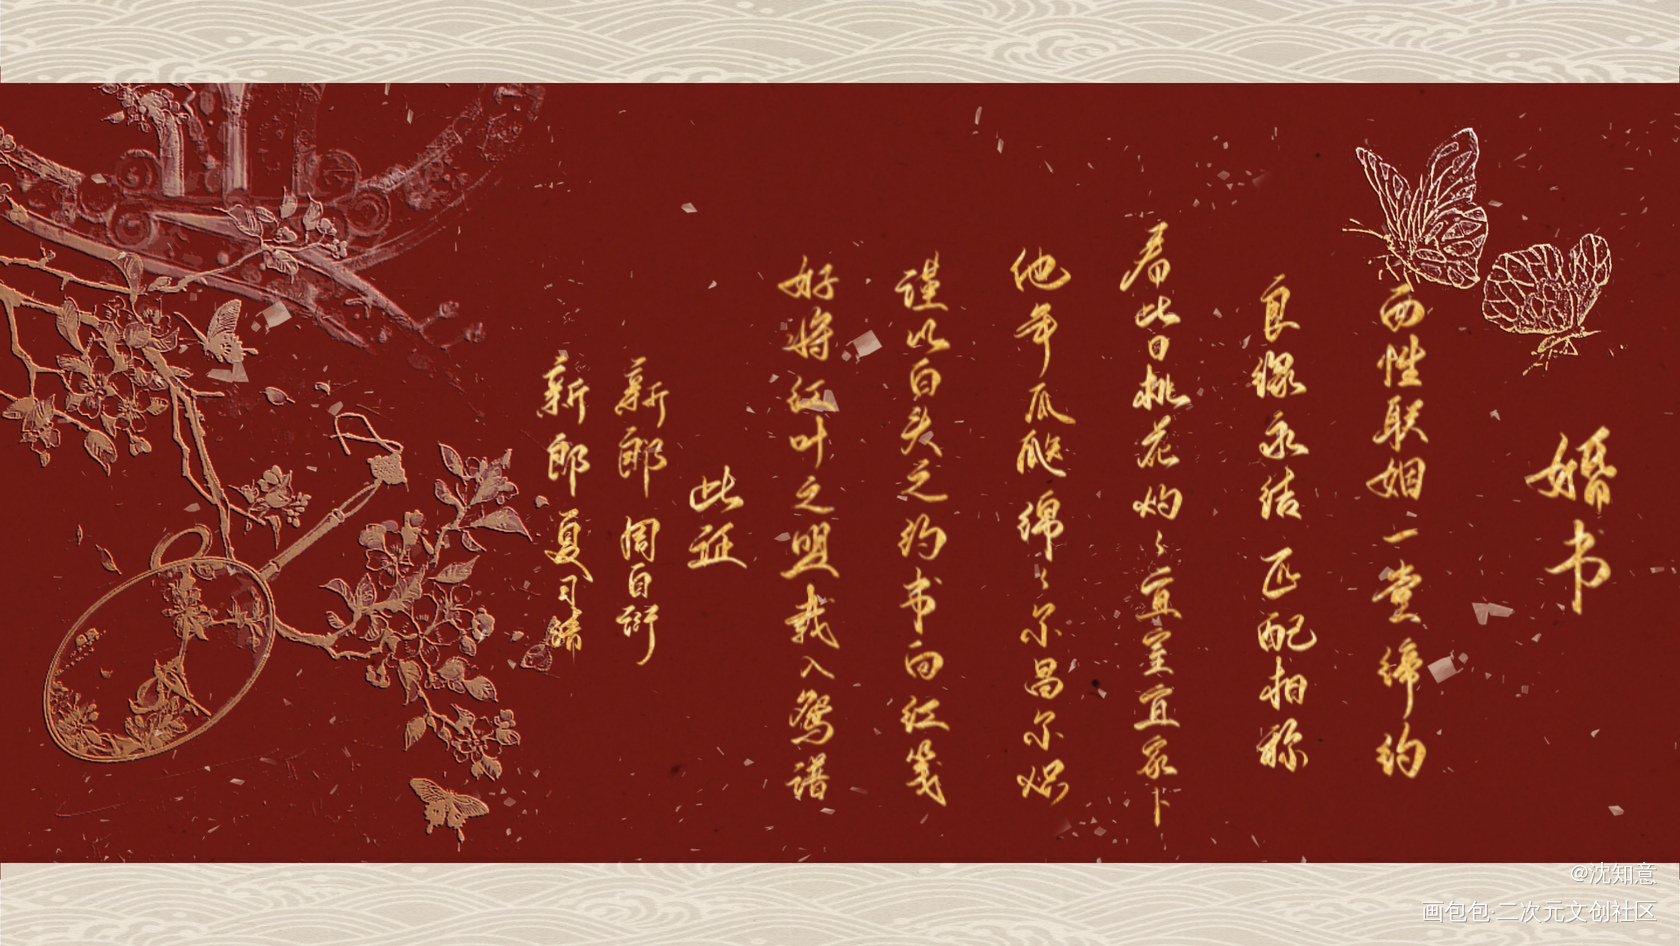 婚书
两性联姻一堂缔约
良缘永结匹配相称
看此日桃花灼灼宜室宜家卜
他年瓜瓞绵绵尔昌尔炽
谨以白头之约书向红笺
好将红叶之盟载入鸳谱
此证
新郎 周自珩
新郎 夏习清
@沈知意
画包包·二次元文创社区